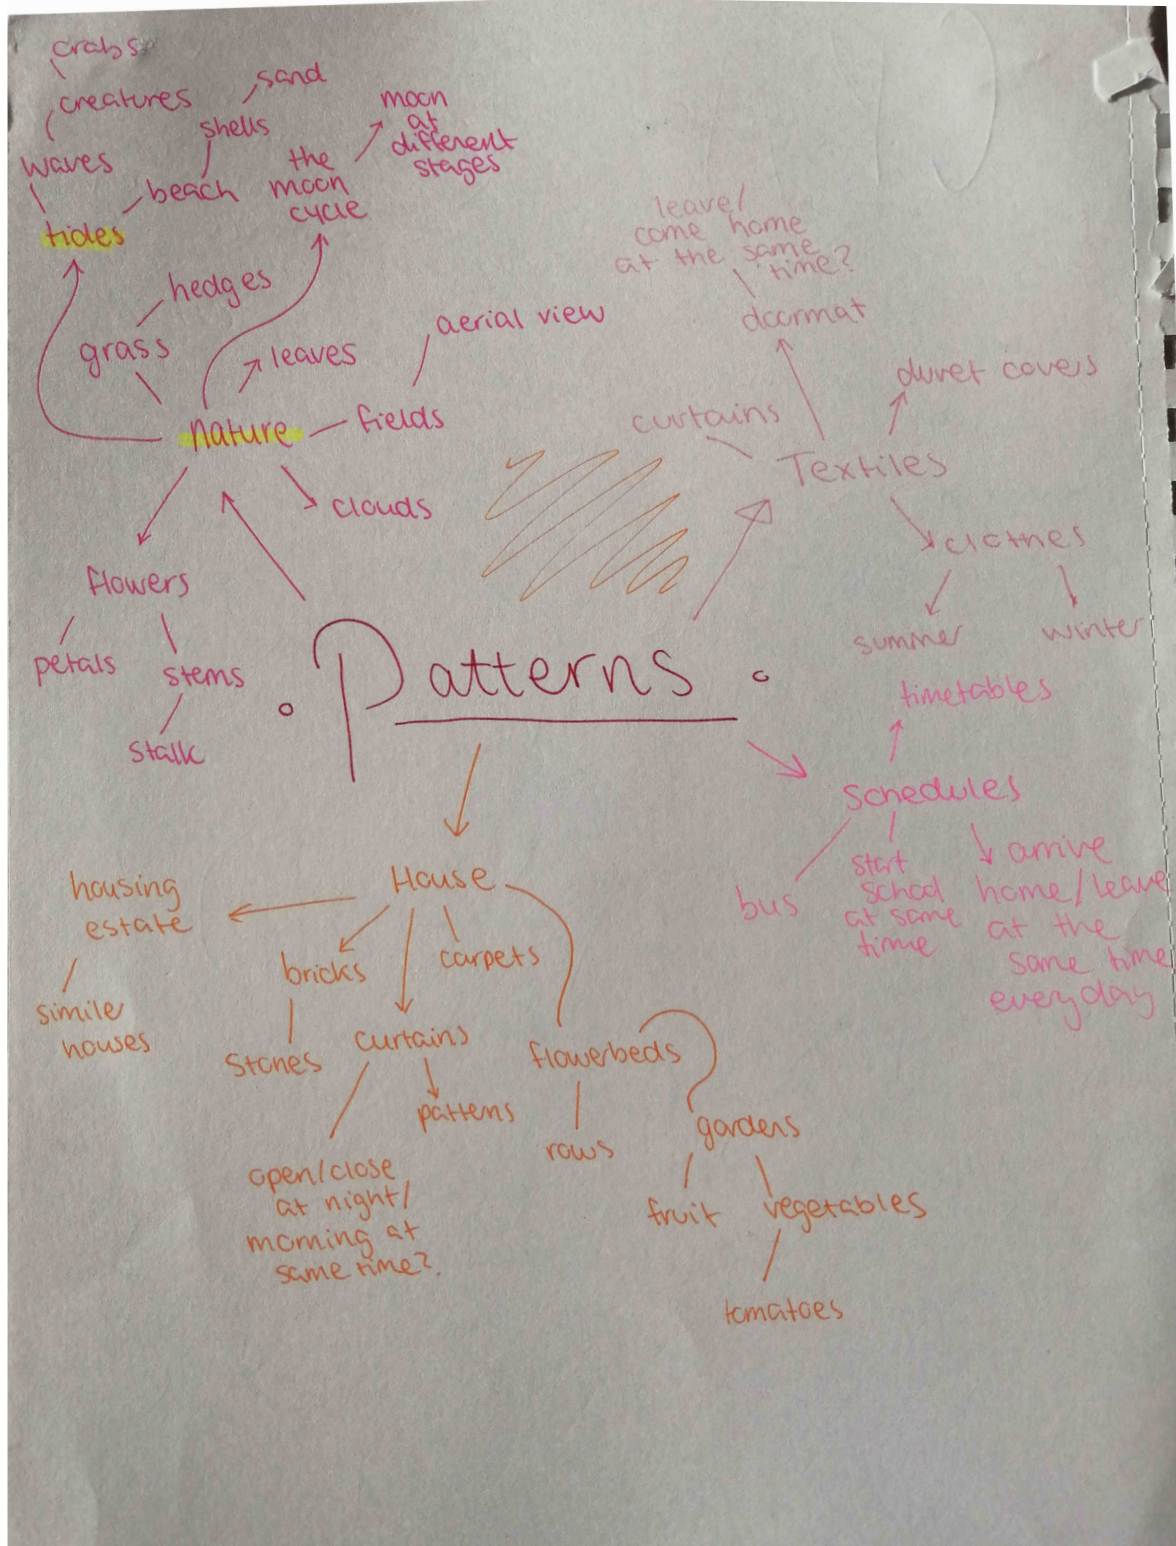 crabs
creatures
waves
tides
beach
shells
sand
the
moon
cycle
moon
at
different
stages
hedges
grass
leaves
nature
fields
aerial view
clouds
flowers
petals
stems
stalk
leave/
come home
at the same
time?
doormat
duvet covers
curtains
Textiles
clothes
summer
winter
Patterns
timetables
Schedules
bus
start
school
at same
time
arrive
home/leave
at the
same time
everyday
House
housing
estate
simile
houses
bricks
Stones
carpets
curtains
pattens
open/close
at night/
morning at
same time?
flowerbeds
rows
gardens
fruit
vegetables
tomatoes